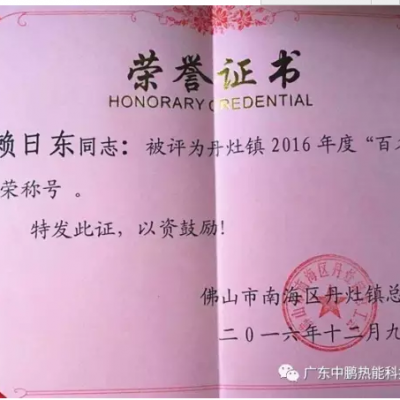 荣誉证书
HONORARY CREDENTIAL
赖日东同志：被评为丹灶镇2016年度“百
荣称号。
特发此证，以资鼓励！
佛山市南海区丹灶镇总
二〇一六年十二月九
广东中鹏热能科